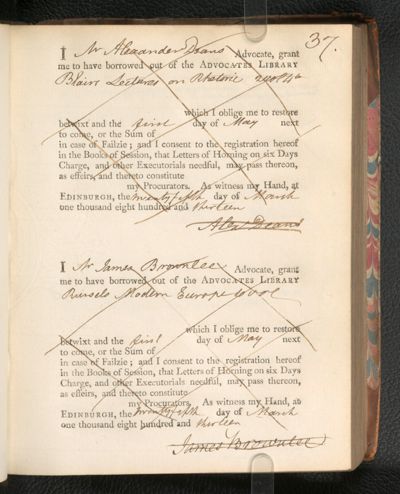 37.
I Mr Alexander Deans Advocate, grant
me to have borrowed out of the ADVOCATES LIBRARY
Blairs Lectures on Rhetoric 2 vol 4to
which I oblige me to restore
betwixt and the first day of May next
to come, or the Sum of
in case of Failzie; and I consent to the registration hereof
in the Books of Session, that Letters of Horning on six Days
Charge, and other Executorials needful, may pass thereon,
as effeirs, and thereto constitute
my Procurators. As witness my Hand, at
EDINBURGH, the twenty fifth day of March
one thousand eight hundred and thirteen
Alexr Deans
I Mr James Brownlee Advocate, grant
me to have borrowed out of the ADVOCATES LIBRARY
Russels Modern Europe 6 vol
which I oblige me to restore
betwixt and the first day of May next
to come, or the Sum of
in case of Failzie; and I consent to the registration hereof
in the Books of Session, that Letters of Horning on six Days
Charge, and other Executorials needful, may pass thereon,
as effeirs, and thereto constitute
my Procurators. As witness my Hand, at
EDINBURGH, the twenty fifth day of March
one thousand eight hundred and thirteen
James Brownlee